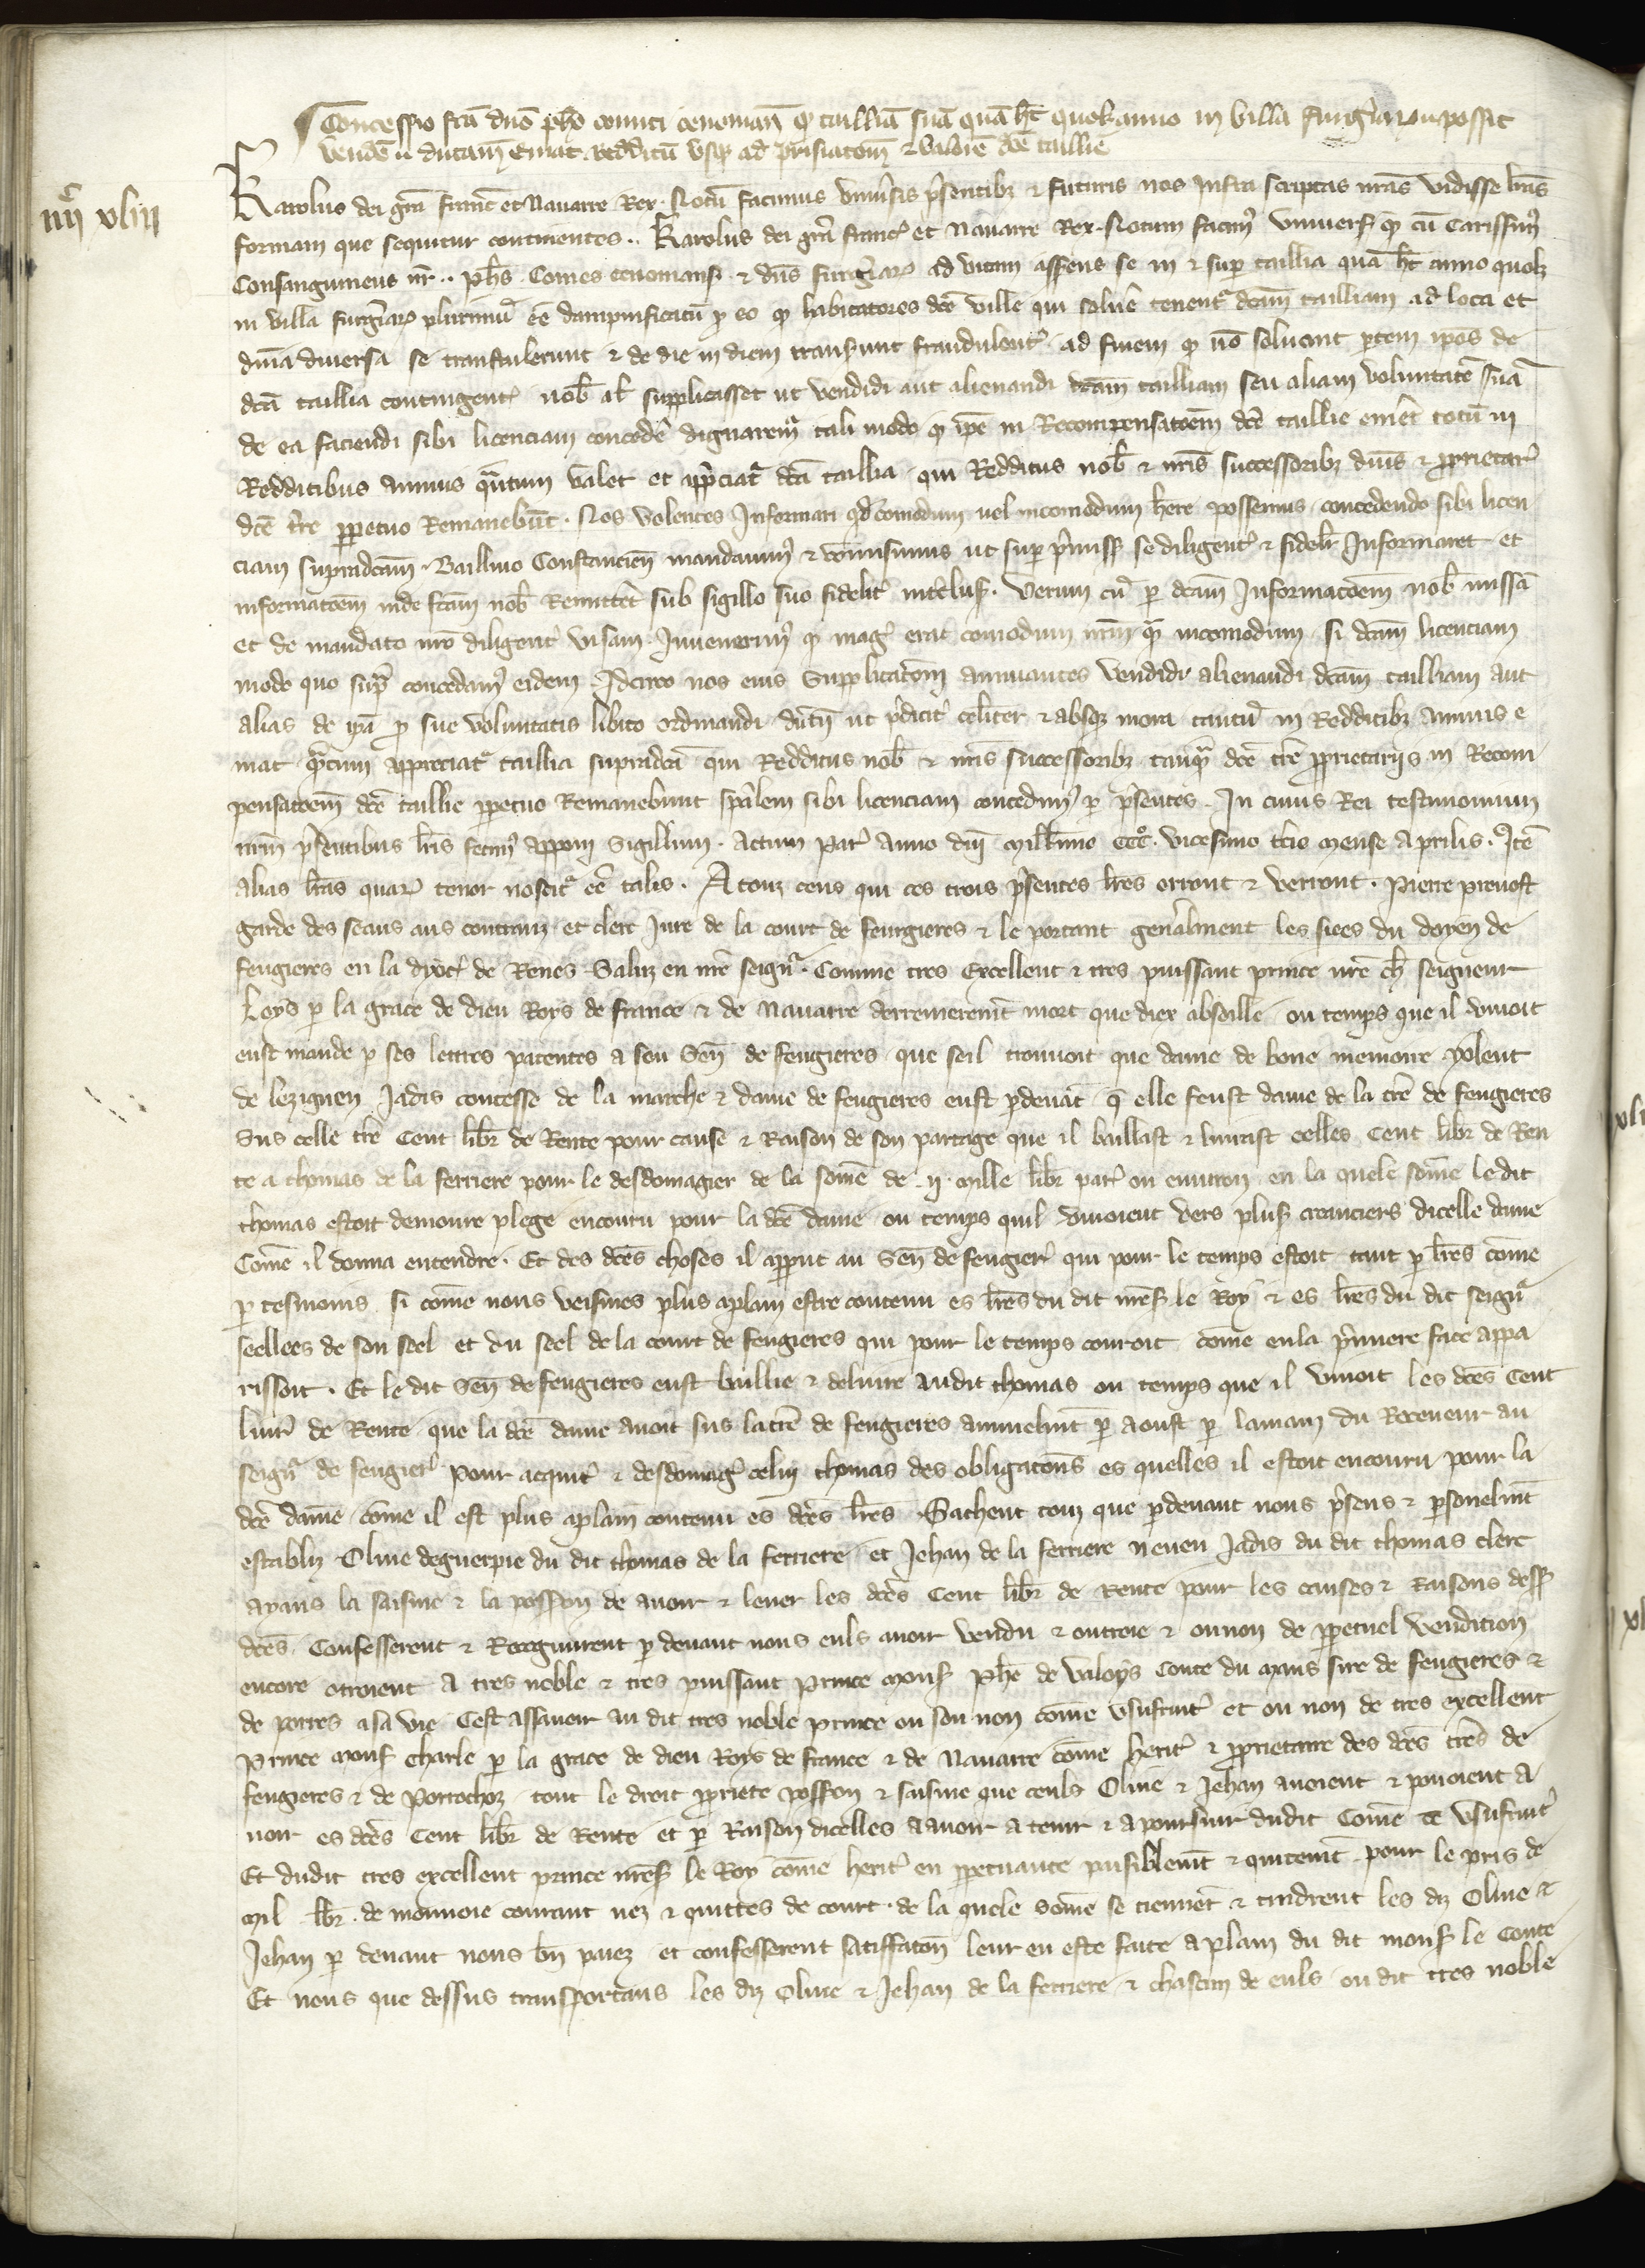 Concessio fcā dnō phō comiti cenomanñ ꝙ tailliā suā quā h̄t quolz anno in villa fulgiarum possit
vendē ii ducam emat redditū vsqꝫ ad prisiatoēm & valorē dcē taillie
iiijc xliij
Karolus dei gr̄a franc̄ et Nauarre Rex. Notū facimus vniūsis p̄sentibꝫ & futuris nos infra scriptas nrās vidisse lr̄as
formam que sequitur continentes.. Karolus dei gr̄a franc̄ et Nauarre Rex. Notum facimꝰ vniuersꝭ ꝙ cū Carissimꝰ
Consanguineus nr̄.. ph̄s Comes cenomanꝭ & dn̄s fulgeriaꝝ ad vitam asserens se in & sup tailliā quā h̄t anno quolz
in villa fulgeriaꝝ plurimū eē dampnificatū ꝓ eo ꝙ habitatores dcē ville qui soluē tenentᷣ dcam̄ tailliam ad loca et
dn̄ia diuersa se transtulerunt & de die in diem transeunt fraudulentᷣ ad finem ꝙ nō soluant ꝑtem ipōs de
dcā taillia contingentᷣ nob̄ at supplicasset ut vendidi aut alienandi dcam̄ tailliam seu aliam voluntatē suā
de ea faciendi sibi licenciam concedē dignaremᷣ tali modo ꝙ ipē in Recompensatoēm dcē taillie emēt totū in
Redditibus annuis qᷓntum valet et app̄ciatᷣ dcā taillia qui Redditus nob̄ & nrīs successoribꝫ dn̄is & ꝓprietarᷣ
dcē tr̄re ꝑpetuo Remanebūt. Nos volentes Informari qd̄ comodum uel incomodum hēre possemus concedendo sibi licen
ciam supradcam̄. Baillino Constancien̄ mandauimꝰ & comisimus ut sup p̄missꝭ se diligentᷣ & fidelr̄ Informaret et
informatoēm inde fcam̄ nob̄ Remitteret sub sigillo suo fidelitᷣ interclusꝭ. Verum cū ꝑ dcam̄ Informatoēm nob̄ missā
et de mandato nrō diligentᷣ visam Inuenerimꝰ ꝙ magꝭ erat comodum nrm̄ qᷓ incomodum si dcam̄ licenciam
modo quo supᷓ concedamꝰ eidem. Idcirco nos eius Supplicatoēm annuantes vendidi alienandi dcam̄ tailliam aut
alias de ipā ꝓ sue voluntatis libito ordinandi dūm ut p̄dicitᷣ celiter & absqꝫ mora tantū in Redditibꝫ annuis e
mat qᷓntum appreciatᷣ taillia supradcā qui Redditus nob̄ & nrīs successoribꝫ tanqᷓ dcē trē ꝓprietarijs in Recom
pensatoēm dcē taillie ꝑpetuo Remanebunt sp̄alem sibi licenciam concedimꝰ ꝑ p̄sentes. In cuius Rei testimonium
nrm̄ p̄sentibus lr̄is fecimꝰ apponi Sigillum. Actum Parᷣ Anno dn̄i Millīmo ccco. vicesimo tcīo Mense Aprilis. Itē
alias lr̄as quaꝝ tenor noscitᷣ eē talis. A touz ceus qui ces trois p̄sentes lr̄es orront & verront. Pierre preuost
garde des seaus aus contrauz et clerc Iure de la court de feugieres & le portant gen̄alment les siees du doyen de
feugieres en la dyoc̄ de Renes Saluz en nrē seignᷣ. Comme tres Excellent & tres puissant prince nrē ch̄ seigneur
Loys ꝑ la grace de dieu Roys de france & de Nauarre derremerem̄t mort que diex absoille ou temps que il viuoit
eust mande ꝑ ses lettres patentes a son Sen̄ de feugieres que seil trouuoit que dame de bone memoire yolent
de lezignen Iadis contesse de la marche & dame de feugieres eust ꝑdeuāt q̄ elle feust dame de la trē de feugieres
Sus celle trē Cent libr̄ de Rente pour cause & Raison de son partage que il baillast & liurast celles Cent libr̄ de Ren
te a thomas de la ferriere pour le desdomagier de la some de .ij. Mille libr̄ parᷣ ou enuiron en la quele somē le dit
thomas estoit demoure plege encouru pour la dcē dame ou temps quil viuoient vers plusꝭ creanciers dicelle dame
Comē il donna entendre. Et des dcēs choses il apprut au Sen̄ de feugierᷣ qui pour le temps estoit tant ꝑ lr̄es comē
ꝑ tesmoins si comē nous veismes plus aplain estre contenu es lr̄es du dit mesꝭ le Roy & es lr̄es du dit seignᷣ
seellees de son seel et du seel de la court de feugieres qui pour le temps couroit comē en la p̄miere face appa
rissoit. Et le dit Sen̄ de feugieres eust baillie & deliure audit thomas ou temps que il viuoit les dcēs Cent
liurᷣ de Rente que la dcē dame auoit sus la trē de feugieres annuelmt̄ p̄ aoust ꝑ lamain du Receueur au
seignᷣ de feugierᷣ pour acquitᷣ & desdomagᷣ celuy thomas des obligatons̄ es quelles il estoit encouru pour la
dcē dame comē il est plus aplain contenu es dcēs lr̄es. Sachent touz que ꝑdeuant nous p̄sens & ꝑsonelmt̄
establiz Oliue deguerpie du dit thomas de la ferriere et Jehan de la ferriere neueu Iadis du dit thomas clerc
ayans la saisine & la possꝭon de auoir & leuer les dcēs Cent libr̄ de Rente pour les causes & Raisons dessꝭ
dcēs Confesserent & Recognurent ꝑ deuant nous euls auoir vendu & outroie & ou non de ꝑpetuel vendition
encore otroient a tres noble & tres puissant Prince Monsꝭ Ph̄e de valoys Conte du Mans sire de feugieres &
de porres asa vie Cest assauoir au dit tres noble prince ou son non comē vsufruitᷣ et ou non de tres excellent
Prince Monsꝭ Charle ꝑ la grace de dieu Roys de france & de Nauarre comē heritᷣ & ꝓprietaire des dcēs trēs de
feugieres & de Porrochoz tout le droit ꝓpriete possꝭon & saisine que ceuls Oliue & Jehan auoient & pouoient a
uoir es dcēs Cent libr̄ de Rente et ꝑ Raison dicelles a auoir a tenir & apoursuir dudit Comē te vsufruitᷣ
Et dudit tres excellent prince mesꝭ le Roy comē heritᷣ en ꝑpetuaute paisiblemt̄ & quitemt̄ pour le pris de
Mil libr̄. de monnoie courant nez & quittes de court. de la quele somē se tiennēt & tindrent les diz Oliue &
Jehan ꝑ deuant nous bn̄ paiez et confesserent satiffaton̄ leur en este faite aplain du dit monsꝭ le Conte
Et nous que dessus transportans les diz Oliue & Jehan de la ferriere & chascun de euls ou dit tres noble